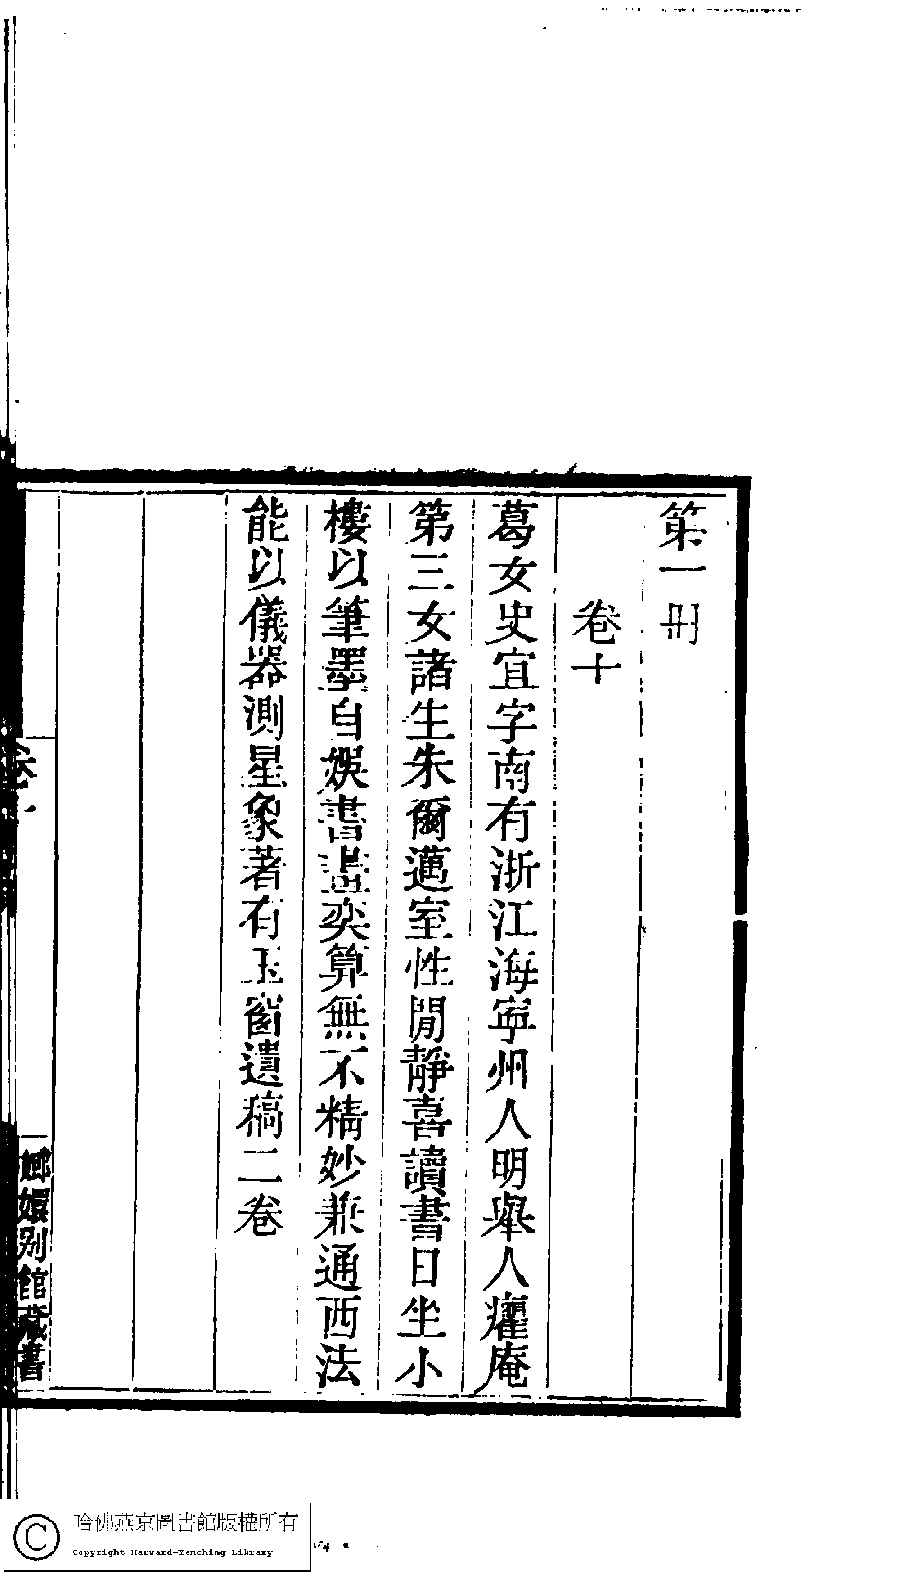 第一冊
卷十
葛女史宜字南有浙江海寧州人明舉人癯庵
第三女諸生朱爾邁室性閒靜喜讀書日坐小
樓以筆墨自娛書畫奕算無不精妙兼通西法
能以儀器測星象著有玉窗遺稿二卷
卷十
嫏嬛別館藏書
哈佛燕京圖書館版權所有
Copyright Harvard-Yenching Library